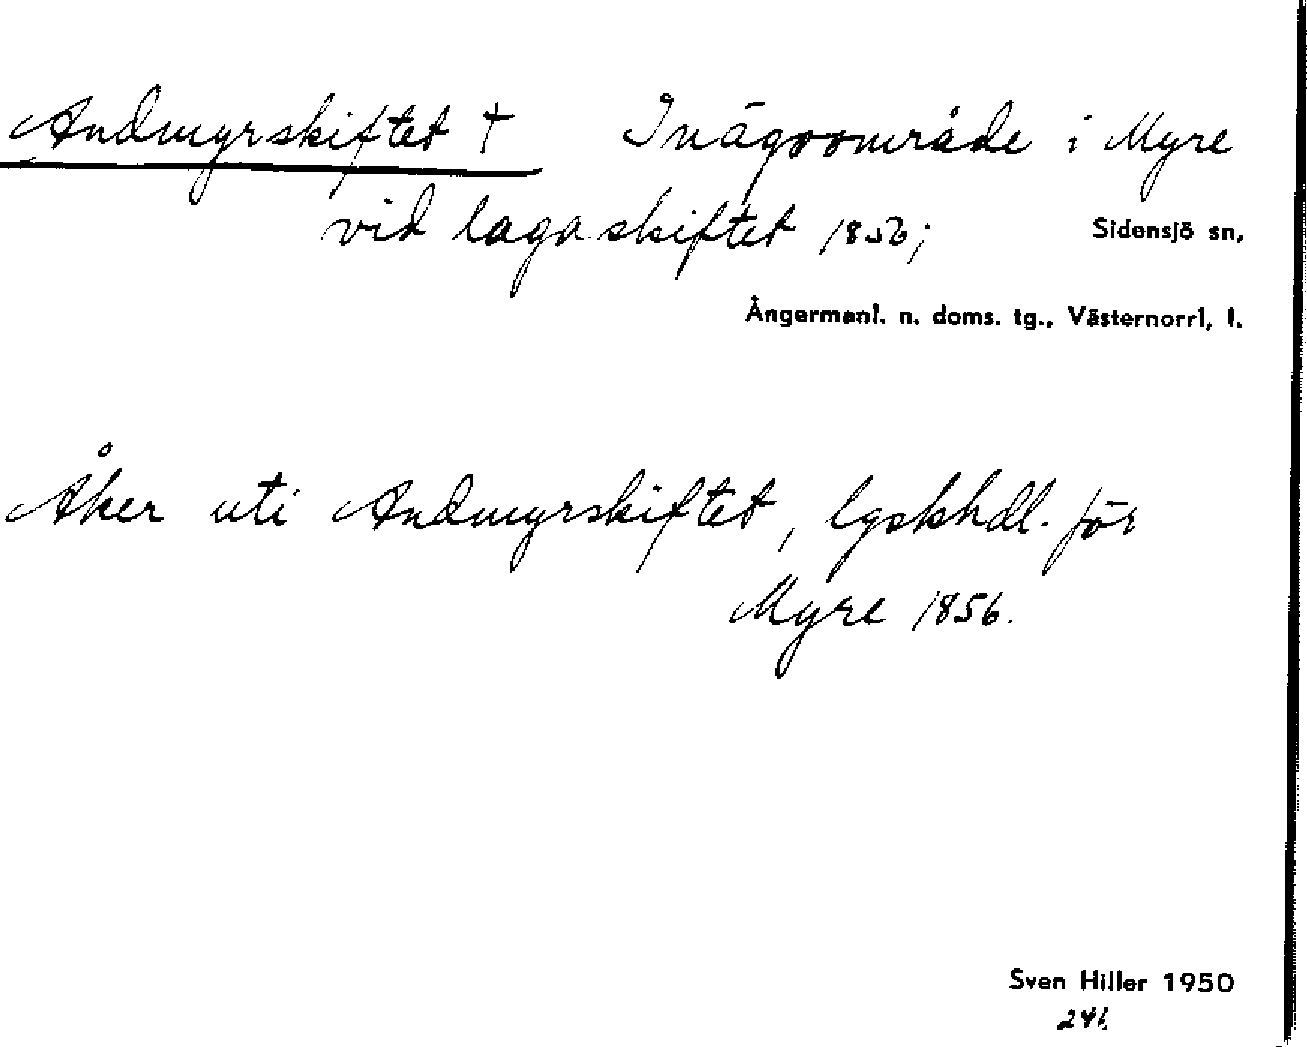 Andmyrskiftet † Inägoområde i Myre
vid laga skiftet 1856;
Sidensjö sn,
Ångermanl. n. doms. tg., Västernorrl, l.
Åker uti Andmyrskiftet, lgskhdl. för
Myre 1856.
Sven Hiller 1950